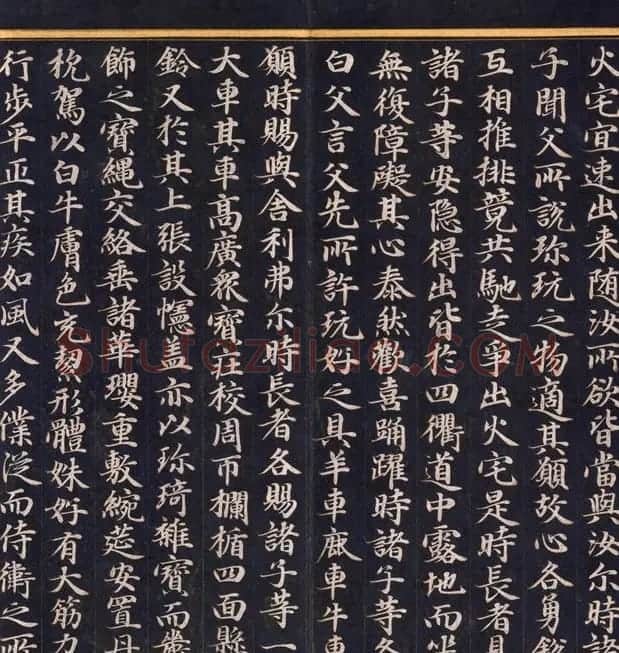 火宅宜速出来随汝所欲皆當與汝尔時諸
子聞父所說珎玩之物適其願故心各勇銳
互相推排競共馳走爭出火宅是時長者見
諸子等安隐得出皆於四衢道中露地而坐
無復障礙其心泰然歡喜踊躍時諸子等各
白父言父先所許玩好之具羊車鹿車牛車
願時賜與舍利弗尔時長者各賜諸子等一
大車其車高廣衆寶莊校周帀欄楯四面懸
鈴又於其上張設幰盖亦以珎琦雜寶而嚴
飾之寶繩交絡垂諸華瓔重敷綩莚安置丹
枕駕以白牛膚色充潔形體姝好有大筋力
行步平正其疾如風又多僕從而侍衛之所
Shufaziliao.COM